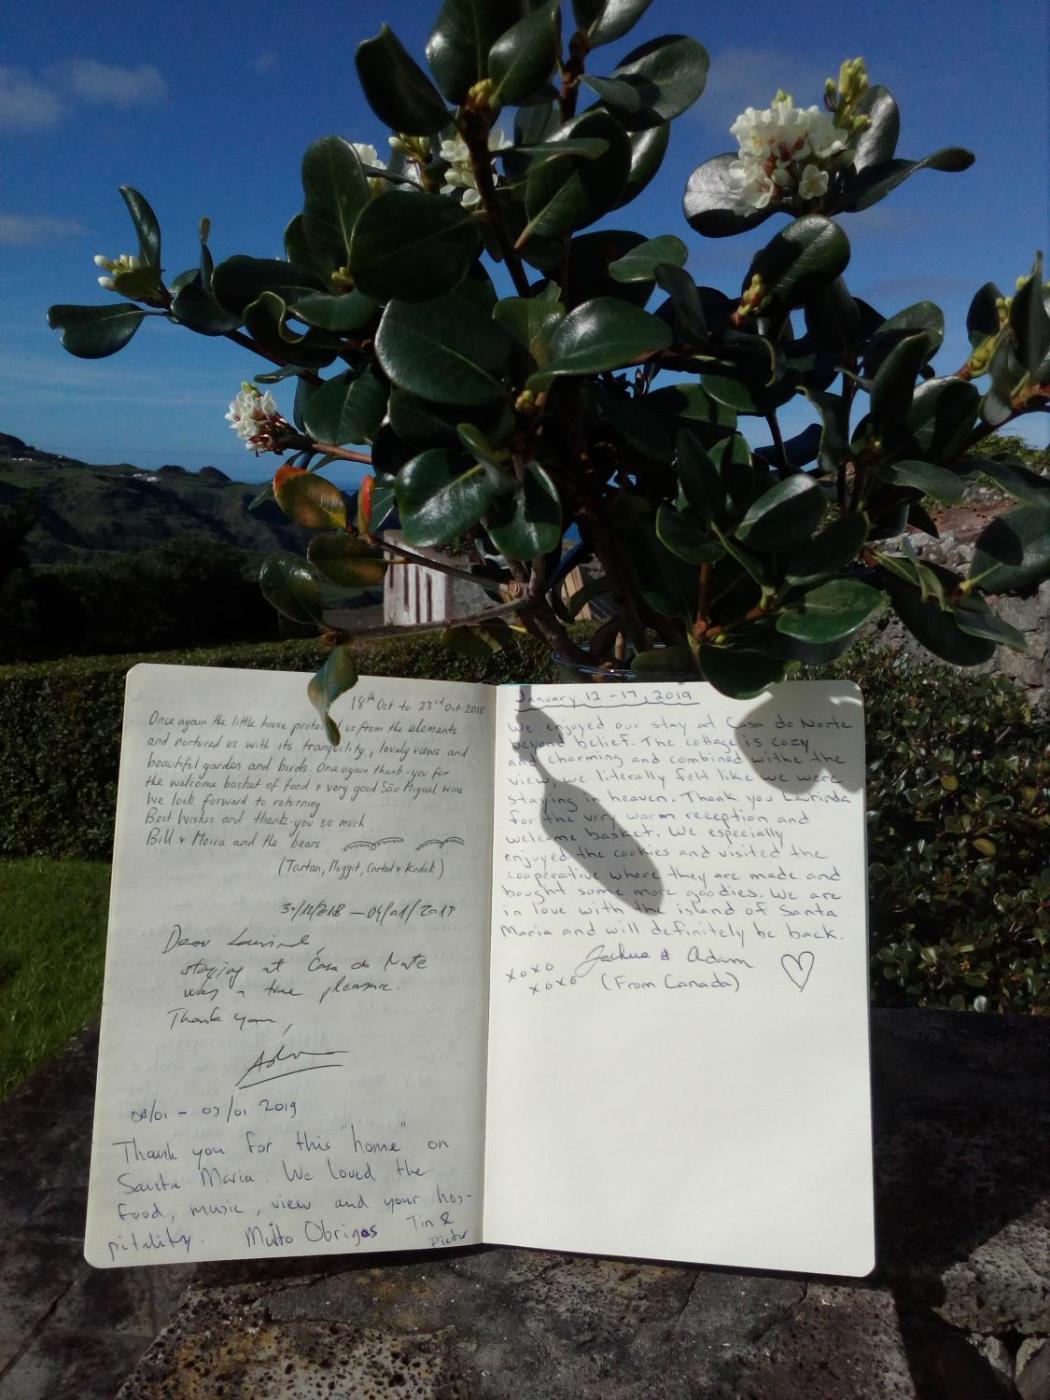 18th Oct to 23rd Oct 2018
Once again the little house protected us from the elements
and nurtured us with its tranquility, lovely views and
beautiful garden and birds. Once again thank-you for
the welcome basket of food + very good São Miguel wine
We look forward to returning
Best Wishes and thank-you so much
Bill + Moira and the bears
(Tartan, Nuggit, & Kodak)
Dear
staying at Casa do Norte
was a true pleasure.
Thank you,
01 - 07/01 2019
Thank you for this "home" on
Santa Maria. We loved the
food, music, view and your hos-
pitality. Muito Obrigas Tin &
Pieter
January 12 - 17, 2019
We enjoyed our stay at Casa do Norte
beyond belief. The cottage is cozy
and charming and combined withe the
view, we literally felt like we were
staying in heaven. Thank you Laurinda
for the very warm reception and
welcome basket. We especially
enjoyed the cookies and visited the
cooperative where they are made and
bought some more goodies. We are
in love with the island of Santa
Maria and will definitely be back.
xoxo Joshua & Adam
xoxo (From Canada)